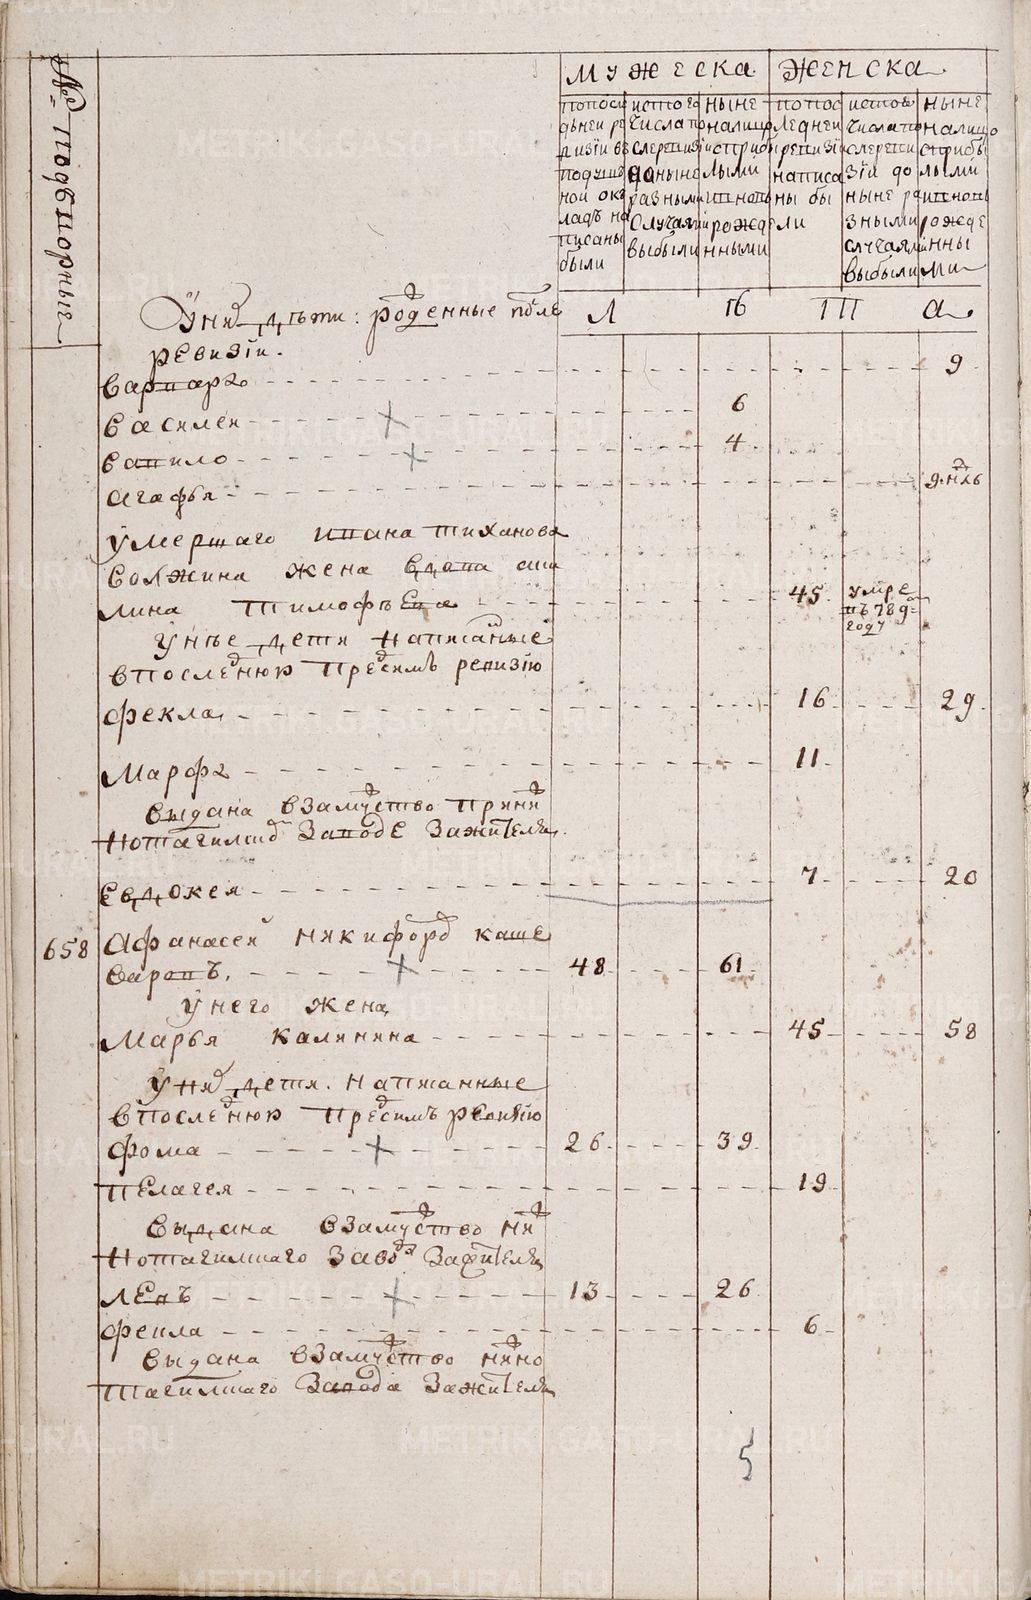 № подворные
мужеска женска
попосл
дьней ре
визіи в
подуш
ной окъ
ладъ на
писаны
были
истого
числа по
слеревизі
до ныне
разными
случаями
выбыли
ныне
налицо
сприбы
лыми
и вновь
рожде
нными
попос
ледней
ревизі
написа
ны бы
ли
истого
числа по
слереви
зіи до
ныне ра
зными
случаями
выбыли
ныне
налицо
сприбы
лыми
и вновь
рожде
нны
ми
ле та
У них дети рожденные после
ревизіи
варвара 9
василей 6
вавило 4
агафья 9 н
умершаго ивана тиханова
волжина жена вдова аки
лина тимофъева 45 умре
въ 789
году
у нъе дети написаные
впоследнюю пред симъ ревизію
фекла 16 29
Марфа 11
выдана взамуство при ни
нотагилской заводе зажителя
евдокея 7 20
658 Афанасей никифоро каше
варовъ 48 61
У него жена
Марья калинина 45 58
У них дети написанные
впоследнюю пред симъ ревизію
фома 26 39
пелагея 19
выдана взамуство ни
нотагилского завода зажителя
левъ 13 26
фекла 6
выдана взамуство нижно
тагилского завода зажителя
5